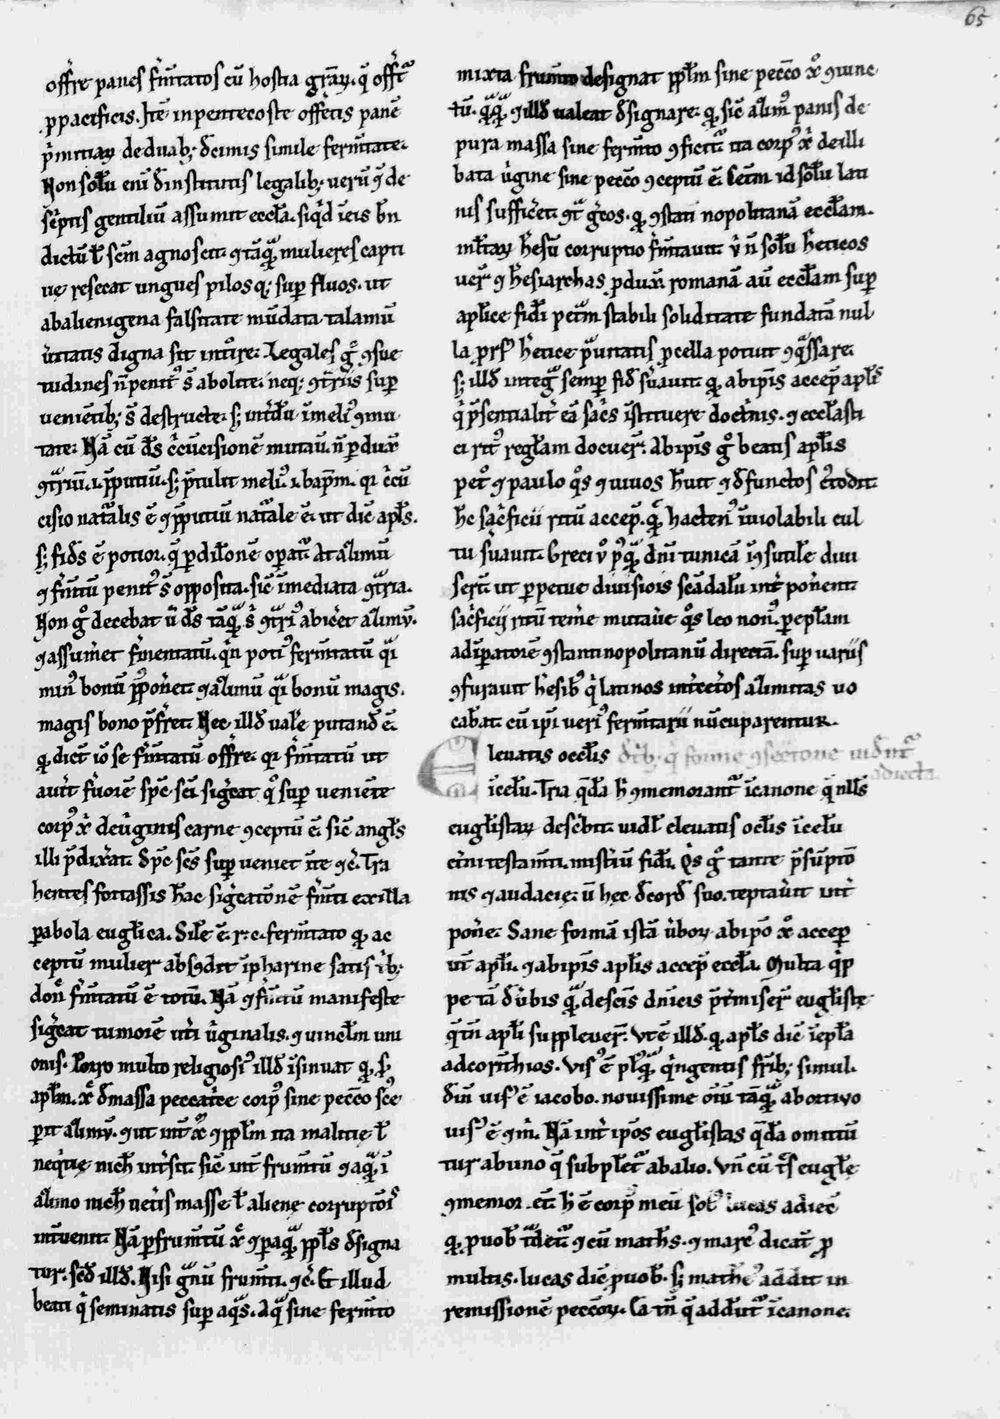 65
offr̄e panes fm̄tatos cū hostia gr̄aꝝ. q̄ offt᷑
ꝓpacificis. Itē inpentecoste offetis panē
p̄mitiaꝝ deduab; dc̄imis simile ferm̄tate.
Non solū eni d̄institutis legalib; uerū ꝯ de
sc̄ptis gentiliū assumit eccl̄a. siqd̄ īeis bn̄
dictū ł sc̄m agnoscit. ꝯtāqͣ mulieres capti
ue resecat ungues pilosq; suꝑ fluos. ut
abalienigena falsitate mūdata talamū
ūitatis digna sit intrͦre. Legales gͦ ꝯsue
tudines n̄ penitꝰ s̄ abolite. neq; ꝯtrͦriis suꝑ
uenietib; s̄ destructe. s; int̄dū īmeliꝰ ꝯmu
tate. Nā cū ds̄ cͥcūcisionē mutaū. n̄ ꝑdux̄
ꝯtͣriū. i. p̄putiū. s; p̄tulit meliꝰ. i. bapm̄. qi cͥcū
cisio natͣlis ē ꝯ p̄putiū natͣale ē. ut dic̄ apl̄s.
s; fids̄ ē potior. q̄ ꝑdilōnē opat᷑. At alimū
ꝯ fm̄tū penitꝰ s̄ opposita. sic̄ īmediata ꝯtͣria.
Non gͦ decebat ū ds̄ tāqͣ s̄ ꝯtͣriꝰ abicet alimꝰ.
ꝯassumet fm̄entatū. qn̄ potiꝰ ferm̄tatū qͣi
minꝰ bonū p̄ponet. ꝯalimū qͣi bonū magis.
magis bono p̄fret. Nec illd̄ uale putand̄ ē.
q̨ dict̄ iō se fm̄tatū offr̄e. qi fm̄tatū ut
aut̄ furoē spc̄ sc̄i sigcat qͦ suꝑ ueniete
corpꝰ xp̄i deūginis carne ꝯceptū ē. sic̄ angls̄
illi p̄dix̄at. Spc̄ sc̄s suꝑ ueniet ite ꝯc̄. Tra
hentes fortassis hac sigcatōnē fm̄ti exilla
ꝑabola eugl̄ica. Sile ē. r. c. fermtato q̨ ac
ceptū mulier absꝯdit īpharine satis ib;
don̄ fm̄tatū ē totū. Nā ꝯ fm̄tū manifeste
sigcat tumorē utri ūginalis. ꝯ uinclm̄ uni
onis. Porro multo religiosiꝰ illd̄ īsinuat q̨ s;
aplm̄. xp̄c dmassa peccatrice corpꝰ sine pecc̄o sce
ꝑit alimꝰ. ꝯ ut int̄ xp̄m ꝯ pplm̄ ita malitie ł
neqtie nich intsit. sic̄ int frum̄tū ꝯaqͣ. i
alimo nich uetis masse ł aliene corruptōiꝰ
inuenit. Nā ꝑfrum̄tū xp̄c ꝯꝑaqͣ ppls̄ dsigna
tur. scd̄ illd̄. Nisi gͣnū frum̄ti. ꝯc̄. Et illud
beati q̄ seminatis suꝑ aqͣs. Aqͣ sine ferm̄to
mixta frum̄to designat pplm̄ sine pecc̄o xp̄o ꝯiunc
tū. qͣqͣ ꝯ illd̄ ualeat dsignare. q̨ sic̄ alimꝰ panis de
pura massa sine ferm̄to ꝯficit᷑ ita corpꝰ xp̄i deilli
bata ūgine sine pecc̄o ꝯceptū ē. Cet̄m id solū lati
nis sufficet. ꝯtͣ grͦcos. q̨ ꝯstati nopolitanā eccl̄am.
mltaꝝ hesū corruptio fm̄tauit. ū n̄ solū heticos
uer̄ ꝯ hesiarchas ꝓdux̄. romanā aū eccl̄am suꝑ
aplice fidi petm̄ stabili soliditate fundatā nul
la ꝓrsꝰ hetice p̄uitatis ꝓcella potuit ꝯqͣssare.
s; illd̄ integͣ semꝑ fid suauit. q̨ abip̄is accep̄ aplis
q̄ p̄sentialit eā sacis īstituere doctnis. ꝯ eccl̄asti
ci ritꝰ reglam docuer̄. Abipis gͦ beatis aplis
petͦ ꝯ paulo qͦs ꝯ uiuos huit ꝯ dfunctos c̄todit.
hc saċficii ritū accep̄. qͤ hactenꝰ īuiolabili cul
tu suauit. Greci ū pꝰqͣ dnī tunicā īꝯsutile diui
serūt ut ꝑpetue diuisiois scādalū int ponerent
saċficij ritū temͤe mutaue. qͦs leo nonꝰ. ꝑeplam
adipatorē ꝯstantinopolitanū directā. suꝑ uariis
ꝯfutauit hesibꝰ q̄ latinos int cet̄os alimitas uo
cabat. cū ipi ueriꝰ fermtarii nūcuparentur.
Eleuatis ocl̄is dr̄ib; q̄ forme ꝯsecͣtione uidnt᷑
adiecta.
īcelū. Tria qd̄a h̄ ꝯmemorant᷑ īcanone q̄ nlls̄
eugl̄istaꝝ desc̄bit. uidl̄ eleuatis ocl̄is īcelū
etni testam̄ti. mist̄iū fidi. Qͥs gͦ tante p̄sūptō
nis ꝯaudacie. ū hec dcord suo. teptaūt int
pon̄e. Sane formā istā ūboꝝ abipō xp̄o accep
ūt apli. ꝯabipis aplis accep̄ eccl̄a. Multa qͥp
pe tā dūbis qͣ descis dn̄icis p̄t̄miser̄ eugl̄iste
q̄tn̄ apli suppleuer̄. Vtē illd̄. q̨ apls̄ dic̄ īepl̄a
adcorīthios. Visꝰ ē pꝰqͣ qͥngentis frib; simul.
dn̄i uisꝰ ē iacobo. nouissime oīū tāqͣ abortiuo
uisꝰ ē ꝯm. Nā int ipōs eugl̄istas qd̄a omittū
tur abuno q̄ subplet᷑ abalio. Vn̄ cū tͤs eugl̄e
ꝯmemor. et. h̄ ē corpꝰ meū solꝰ lucas adiec̄
q̨ puob t͛det᷑ ꝯcū maths. ꝯ marcꝰ dicat᷑ p̄
multis. lucas dic̄ puob. s; matheꝰ addit in
remissionē pecc̄oꝝ. Ca tn̄ q̄ addūt᷑ īcanone.